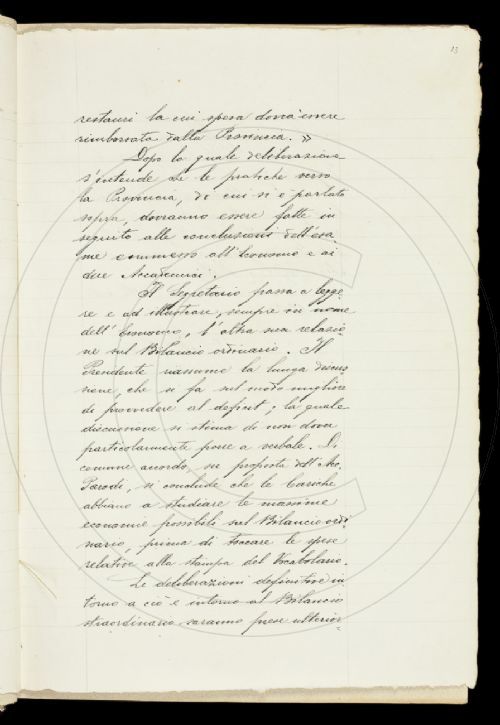 13
restauri la cui spesa dovrà essere
rimborsata dalla Provincia. »
Dopo la quale deliberazione
s'intende che le pratiche verso
la Provincia, di cui si è parlato
sopra, dovranno essere fatte in
seguito alle conclusioni dell'esa-
me commesso all'Economo e ai
due Accademici.
Il Segretario passa a legge-
re e ad illustrare, sempre in nome
dell'Economo, l'altra sua relazio-
ne sul Bilancio ordinario. Il
Presidente riassume la lunga discus-
sione, che si fa sul modo migliore
di provvedere al deficit; la quale
discussione si stima di non dover
particolarmente porre a verbale. Di
comune accordo, su proposta dell'Acc.
Parodi, si conclude che le Cariche
abbiano a studiare le massime
economie possibili sul Bilancio ordi-
nario, prima di toccare le spese
relative alla stampa del Vocabolario.
Le deliberazioni definitive in-
torno a ciò e intorno al Bilancio
straordinario saranno prese ulterior-